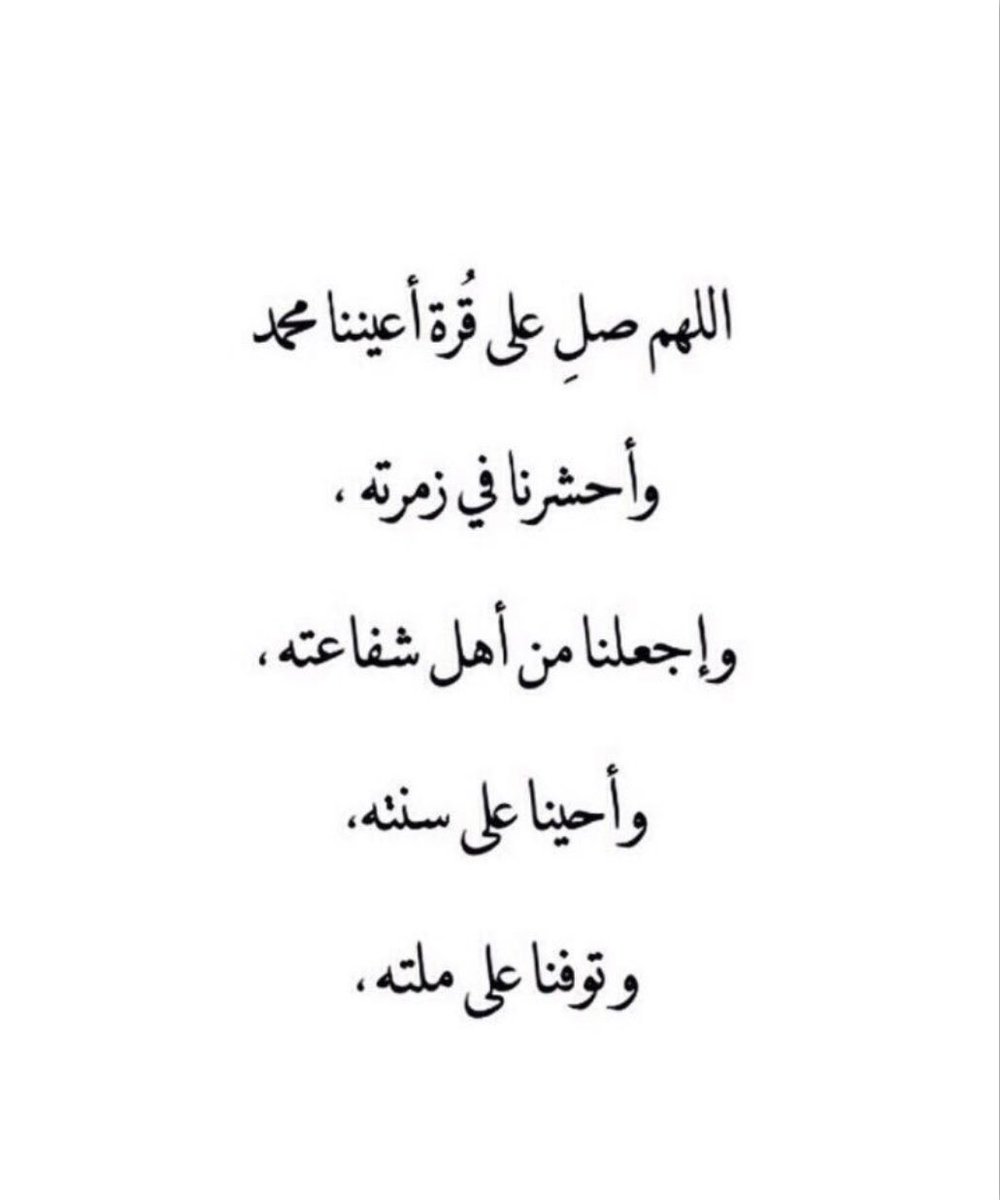 اللهم صلِ على قُرة أعيننا محمد
وأحشرنا في زمرته ،
وإجعلنا من أهل شفاعته ،
وأحينا على سنته،
و توفنا على ملته ،